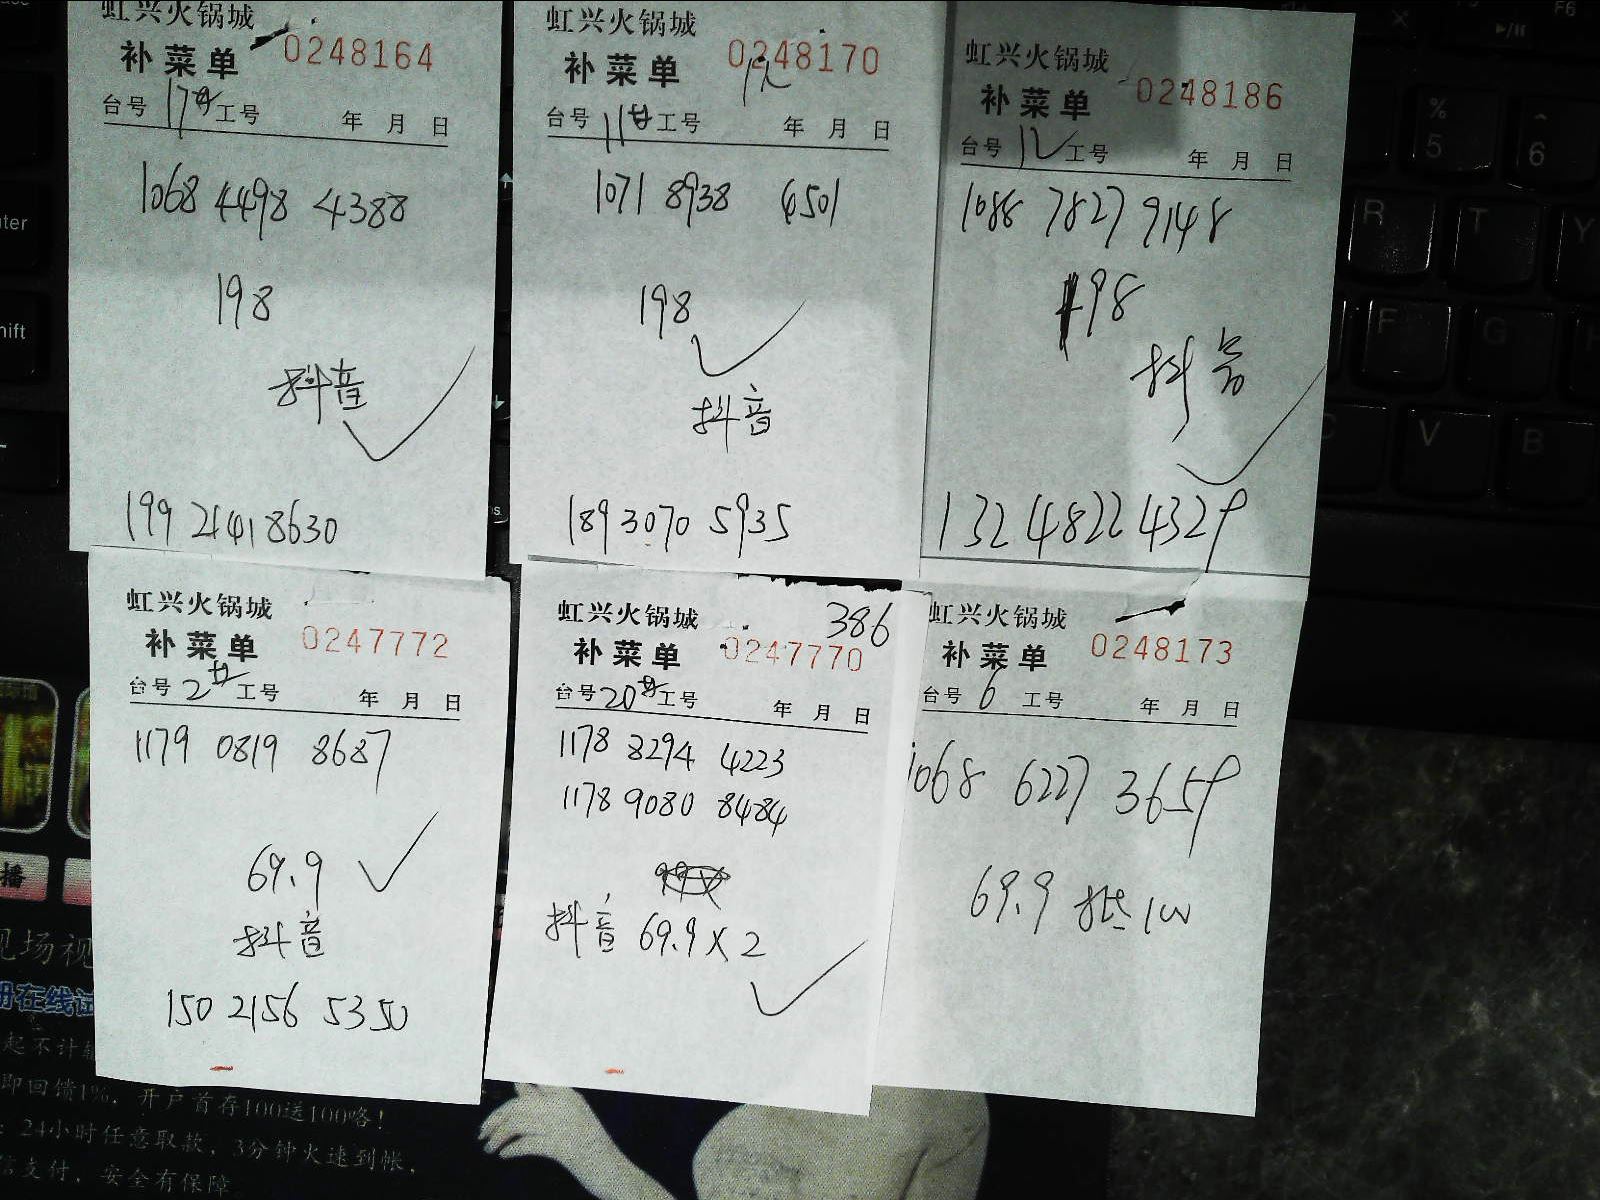 虹兴火锅城
补菜单 0248164
台号 17# 工号 年 月 日
1068 4498 4388
198
抖音
199 21418630
虹兴火锅城
补菜单 0248170
台号 11# 工号 年 月 日
1071 8938 6501
198
抖音
189 3070 5935
虹兴火锅城
补菜单 0248186
台号 12 工号 年 月 日
1088 7827 9148
198
抖音
132 4822 4329
虹兴火锅城
补菜单 0247772
台号 2# 工号 年 月 日
1179 0819 8687
69.9
抖音
150 2156 5350
虹兴火锅城 386
补菜单 0247770
台号 20# 工号 年 月 日
1178 8294 4223
1178 9080 8484
抖音 69.9 X 2
虹兴火锅城
补菜单 0248173
台号 6 工号 年 月 日
1068 6227 3659
69.9 抵100
播
现场视
册在线试
起不计
即回馈1%，开户首存100送100咯！
：24小时任意取款，3分钟火速到帐，
信支付，安全有保障
% 5
^ 6
F6
R
T
Y
F
G
V
B
hift